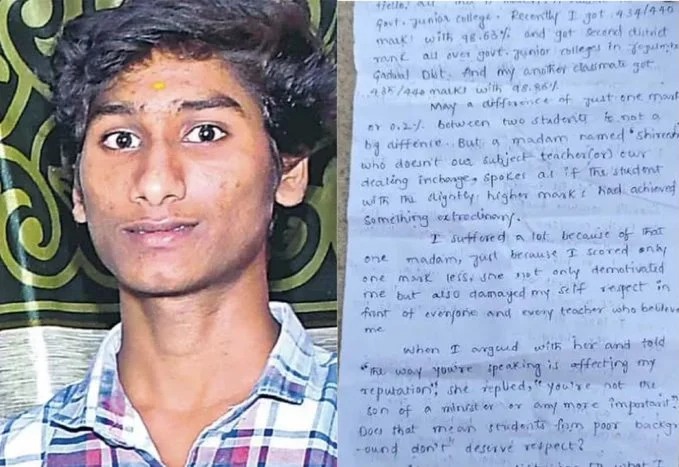 Hello, all
Govt. Junior college. Recently I got 434/440
marks with 98.63% and got second district
rank all over govt. junior colleges in
Gadwal Dist. And my another classmate got
435/440 marks with 98.86%
May a difference of just one mark
or 0.2% between two students is not a
big diffense. But a madam named
who doesn't our subject teacher(or) our
dealing incharge, spokes as if the student
with the slightly higher marks had achieved
something extrordinary.
I suffered a lot because of that
one madam, just because I scored only
one mark less, she not only demotivated
me but also damaged my self respect in
front of everyone and every teacher who believe
me
When I argued with her and told
"the way you're speaking is affecting my
reputation", she replied, "you're not the
son of a minister or any more important".
Does that mean students from poor backgr
-ound don't deserve respect?
what I